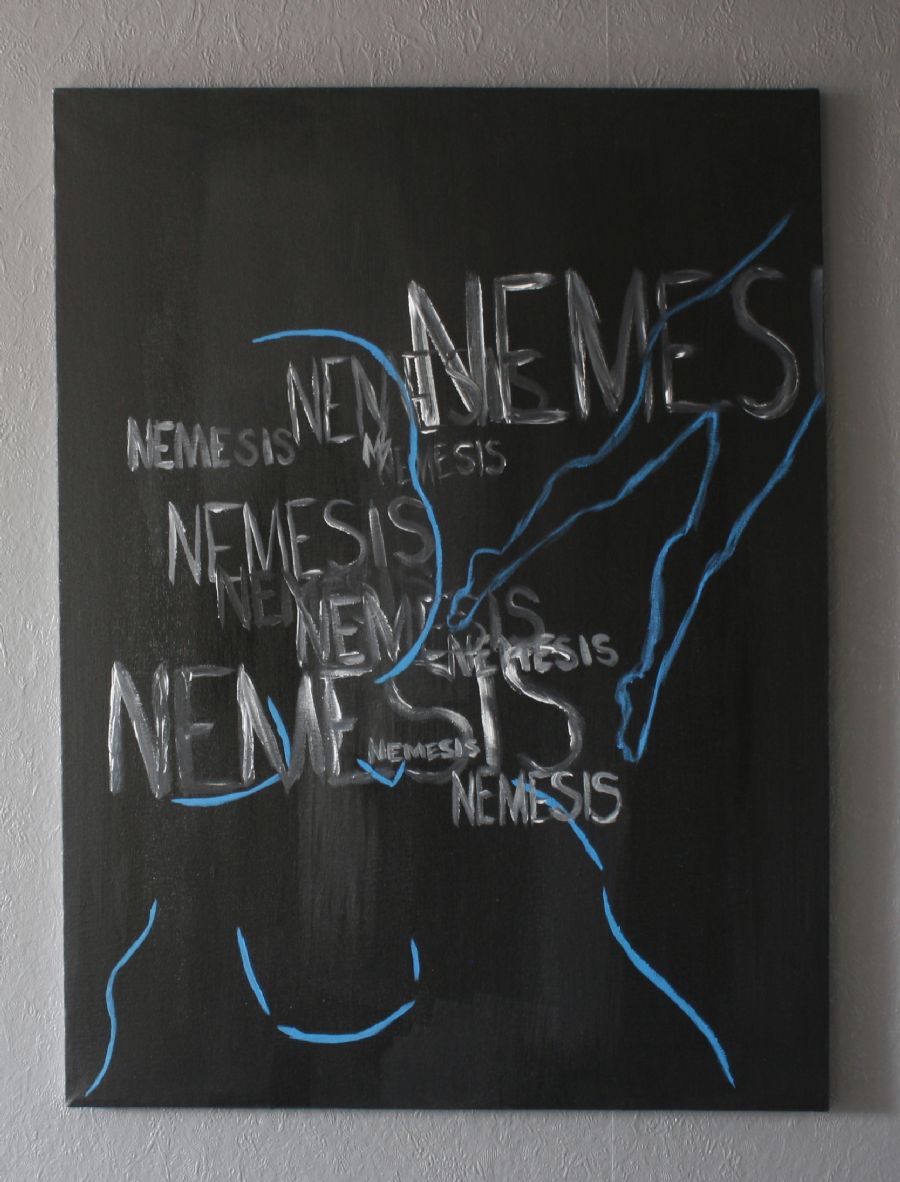 NEMES
NEMESIS
NEMESIS
NEMESIS
NEMESIS
NEMESIS
NEMESIS
NEMESIS
NEMESIS
NEMESIS
NEMESIS